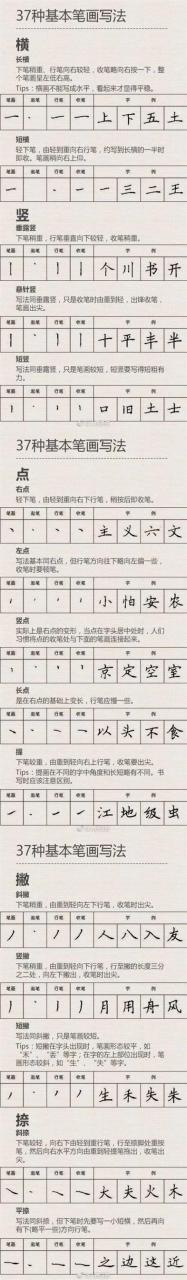 37种基本笔画写法
横
长横
下笔稍重，行笔向右较轻，收笔略向右按一下，整
个笔画呈左低右高。
Tips：横画不能写成水平，看起来才显得平稳。
笔画 起笔 行笔 收笔 字 例
上 下 五 土
短横
轻下笔，由轻到重向右行笔，约写到长横的一半时
即收。笔画稍向右上仰。
笔画 起笔 行笔 收笔 字 例
一 三 二 王
竖
垂露竖
下笔稍重，行笔垂直向下较轻，收笔稍重。
笔画 起笔 行笔 收笔 字 例
个 川 书 开
悬针竖
写法同垂露竖，只是收笔时由重到轻，出锋收笔，
笔画出尖。
笔画 起笔 行笔 收笔 字 例
十 平 丰 半
短竖
写法同垂露竖，只是笔画较短，短竖要写得短粗有
力。
笔画 起笔 行笔 收笔 字 例
口 旧 土 士
37种基本笔画写法
点
右点
轻下笔，由轻到重向右下行笔，稍按后即收笔。
笔画 起笔 行笔 收笔 字 例
主 义 六 文
左点
写法基本同右点，但行笔方向往下略向左偏一些，
收笔时要顿笔。
笔画 起笔 行笔 收笔 字 例
小 怕 安 农
竖点
实际上是右点的变形，当点在字头居中处时，人们
习惯将点的收笔处与下面的笔画连接起来。
笔画 起笔 行笔 收笔 字 例
京 定 空 室
长点
是在右点的基础上变长，行笔应慢一些。
笔画 起笔 行笔 收笔 字 例
以 头 不 食
提
下笔较重，由重到轻向右上行笔，收笔要出尖。
Tips：提画在不同的字中角度和长短略有不同。书
写时应该注意区别。
笔画 起笔 行笔 收笔 字 例
江 地 级 虫
37种基本笔画写法
撇
斜撇
下笔稍重，由重到轻向左下行笔，收笔时出尖。
笔画 起笔 行笔 收笔 字 例
人 八 入 友
竖撇
下笔稍重，由重到轻向下行笔，行至撇的长度三分
之二处，向左下撇出，收笔时出尖。
笔画 起笔 行笔 收笔 字 例
月 用 舟 风
短撇
写法同斜撇，只是笔画较短。
Tips：短撇在字头出现时，笔画形态较平，如
“禾”、“丢”等字；在字的左上部位出现时，笔
画形态较斜，如“生”、“失”等字。
笔画 起笔 行笔 收笔 字 例
生 禾 失 朱
捺
斜捺
下笔较轻，向右下由轻到重行笔，行至捺脚处重按
笔，然后向右水平方向由重到轻提笔拖出，收笔出
尖。
笔画 起笔 行笔 收笔 字 例
大 夫 火 木
平捺
写法同斜捺，但下笔时先要写一小短横，然后再向右
下(略平一些)方向行笔。
笔画 起笔 行笔 收笔 字 例
之 边 这 近